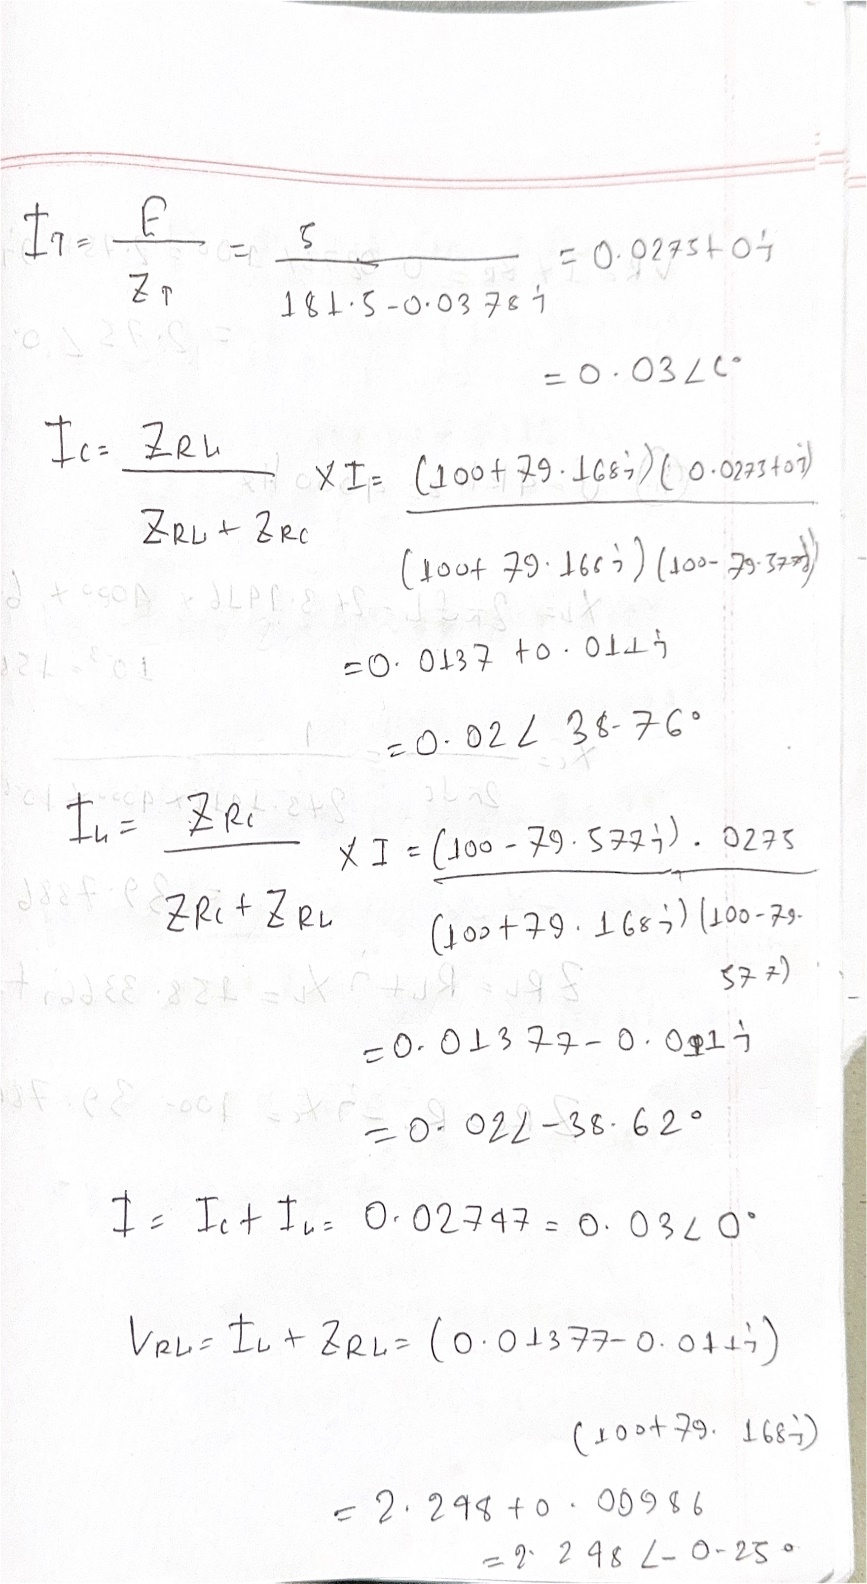 I_T = E / Z_T = 5 / (181.5 - 0.0378j) = 0.0275 + 0j
= 0.03∠0°
I_C = Z_RL / (Z_RL + Z_RC) × I = (100 + 79.168j)(0.0273 + 0j) / (100 + 79.168j)(100 - 79.377j)
= 0.0137 + 0.011j
= 0.02∠38.76°
I_L = Z_RC / (Z_RC + Z_RL) × I = (100 - 79.577j) . 0275 / (100 + 79.168j)(100 - 79.577)
= 0.01377 - 0.011j
= 0.02∠-38.62°
I = I_C + I_L = 0.02747 = 0.03∠0°
V_RL = I_L + Z_RL = (0.01377 - 0.011j)
(100 + 79.168j)
= 2.248 + 0.00986
= 2.248∠-0.25°